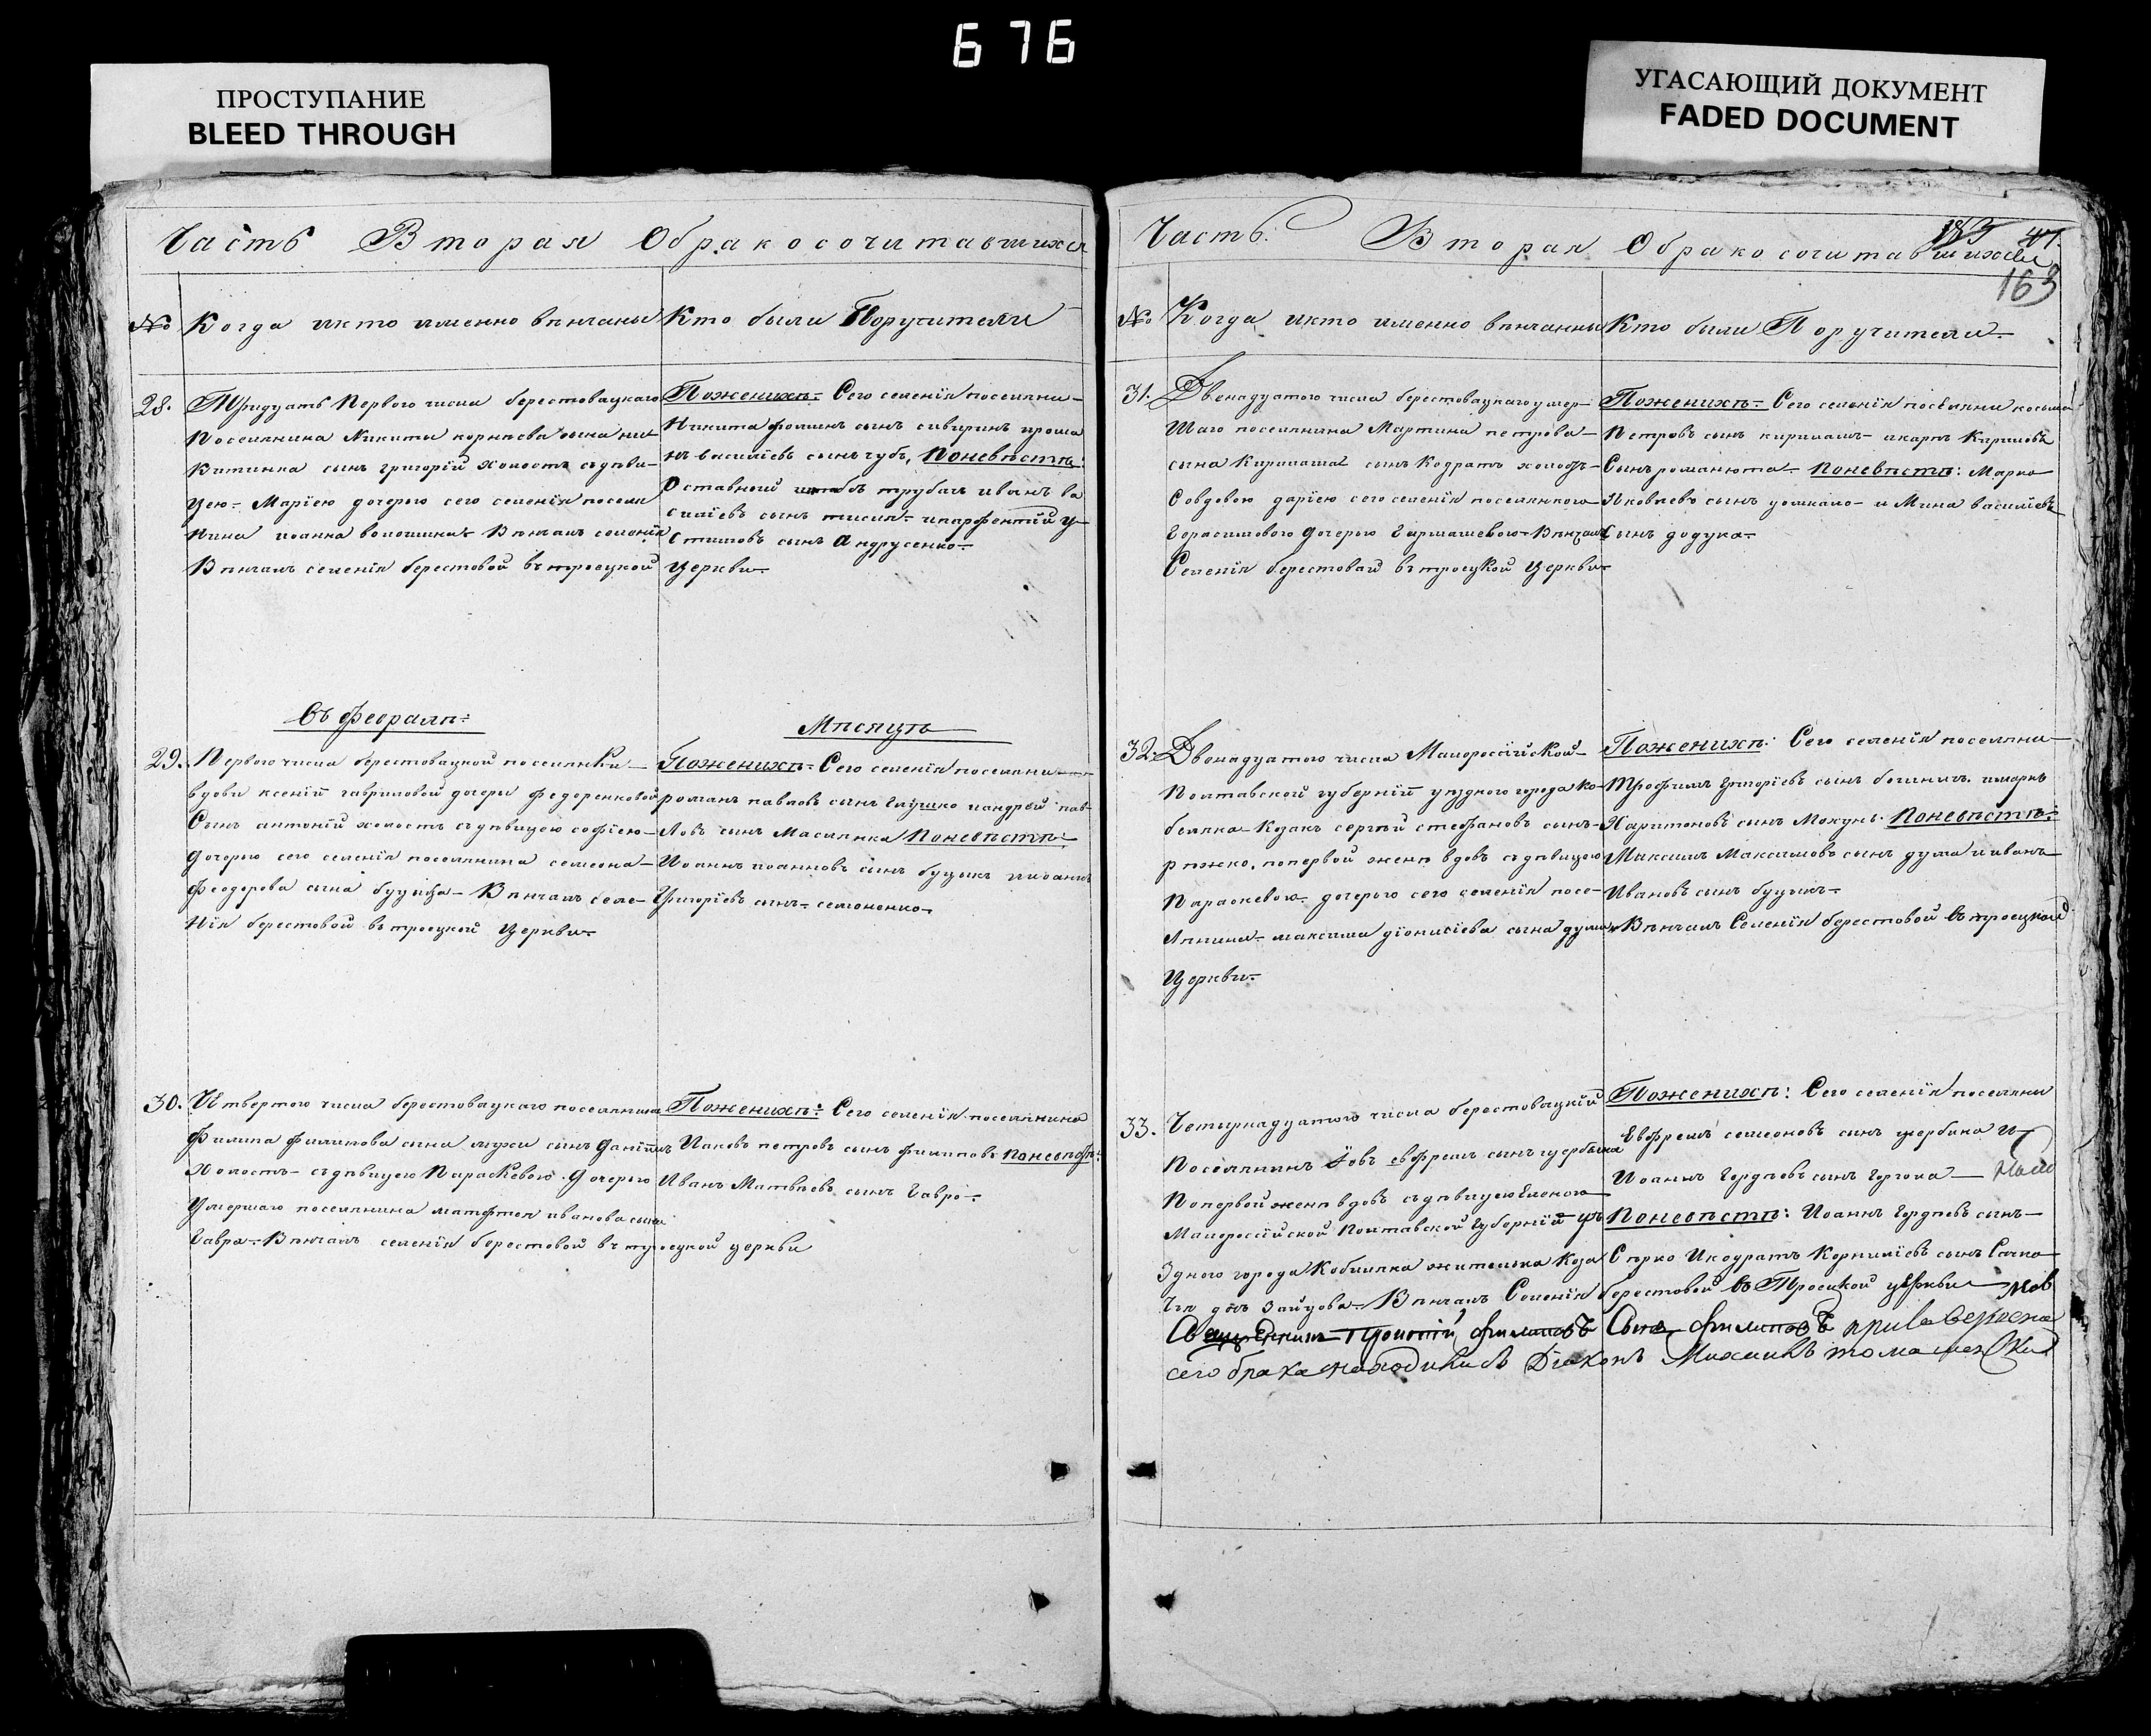 676
ПРОСТУПАНИЕ
BLEED THROUGH
УГАСАЮЩИЙ ДОКУМЕНТ
FADED DOCUMENT
Часть Вторая Обракосочитавшихся
№ Когда икто именно вѣнчаны
Кто были Поручители
28. Тридцать Первого числа берестовацкаго
Поселянина Никиты корнѣева сына ни
китинка сынъ григорій холостъ съдѣви-
цею Маріею дочерью сего селенія посели
нина иоанна волошина Вѣнчанъ селенія
Вѣнчанъ селенія берестовой въ троецкой церкви
Поженихѣ Сего селенія поселяни
Никита фоминъ сынъ сивиринъ ироша
нъ василіевъ сынъ чубъ, Поневѣстѣ
Оставной штабъ трубачъ иванъ ва
силіевъ сынъ лисия ипарфентій у
стимовъ сынъ Андрусенко
Въ февралѣ Мѣсяцѣ
29. Первого числа берестовацкой поселянки
вдовы ксеніи гавриловой дочери федоренковой
Сынъ антоній холостъ съдѣвицею софіею
дочерью сего селенія поселянина семеона
феодорова сына буцыка Вѣнчанъ селе-
нія берестовой въ троецкой церкви
Поженихѣ Сего селенія поселяни
романъ павловъ сынъ глушко иандрей пав-
ловъ сынъ Маслянка Поневѣстѣ
Иоаннъ иоанновъ сынъ буцыкъ ииоаннъ
Григоріевъ сынъ семененко
30. Четвертого числа берестовацкаго поселянина
Филипа филипова сына мухи сынъ даніилъ
Холостъ съдѣвицею Параскевою дочерью
Умершаго поселянина матфея иванова сына
Гавра Вѣнчанъ селенія берестовой въ троецкой церкви
Поженихѣ: Сего селенія поселянина
Иаковъ петровъ сынъ филиповъ Поневѣстѣ:
Иванъ Матвѣевъ сынъ Гавро
Часть Вторая Обракосочитавшихся
47.
163
№ Когда икто именно вѣнчанны
Кто были Поручители
31. Двенадцатого числа берестовацкаго умер-
шаго поселянина Мартина петрова
сына Кирпаша сынъ Кодратъ холостъ
Совдовою даріею сего селенія поселянкою
Герасимовою дочерью Гармашевою Вѣнчанъ
Селенія берестовай въ троецкой церкви
Поженихѣ Сего селенія поселяни косьма
Петровъ сынъ кирпашъ икарпъ Кириловъ
Сынъ романюта Поневѣстѣ: Марко
Яковлевъ сынъ и Мина василіевъ
Сынъ додука
32. Двенадцатого числа Малороссійской
Полтавской губерніи уѣздного города ко-
беляка Козакъ сергѣй стефановъ сынъ
рѣжко, попервой женѣ вдовъ съдѣвицею
Параскевою дочерью сего селенія посе-
лянина максима діонисіева сына думы Вѣнчанъ Селенія берестовой въ троецкой
Церкви
Поженихѣ: Сего селенія поселяни
Трофимъ Григоріевъ сынъ имаркъ
Харитоновъ сынъ Мохунь Поневѣстѣ:
Максимъ Максимовъ сынъ дума ииванъ
Ивановъ сынъ буцыкъ
33. Четырнадцатого числа берестовацкій
Поселянинъ Іовъ евфремъ сынъ щербына
Попервой женѣ вдовъ съдѣвицею Еленою
Малороссійской Полтавской Губерніи уѣ
здного города Кобиляка жителька Коза
Зайцова Вѣнчанъ Селенія берестовой въ Троецкой церкви
Поженихѣ: Сего селенія поселяни
Евфремъ семеоновъ сынъ щербина и
Иоаннъ Гордѣевъ сынъ
Поневѣстѣ: Иоаннъ Гордѣевъ сынъ
Сѣрко Икодратъ Корниліевъ сынъ
сего брака находился Діаконъ Михаилъ